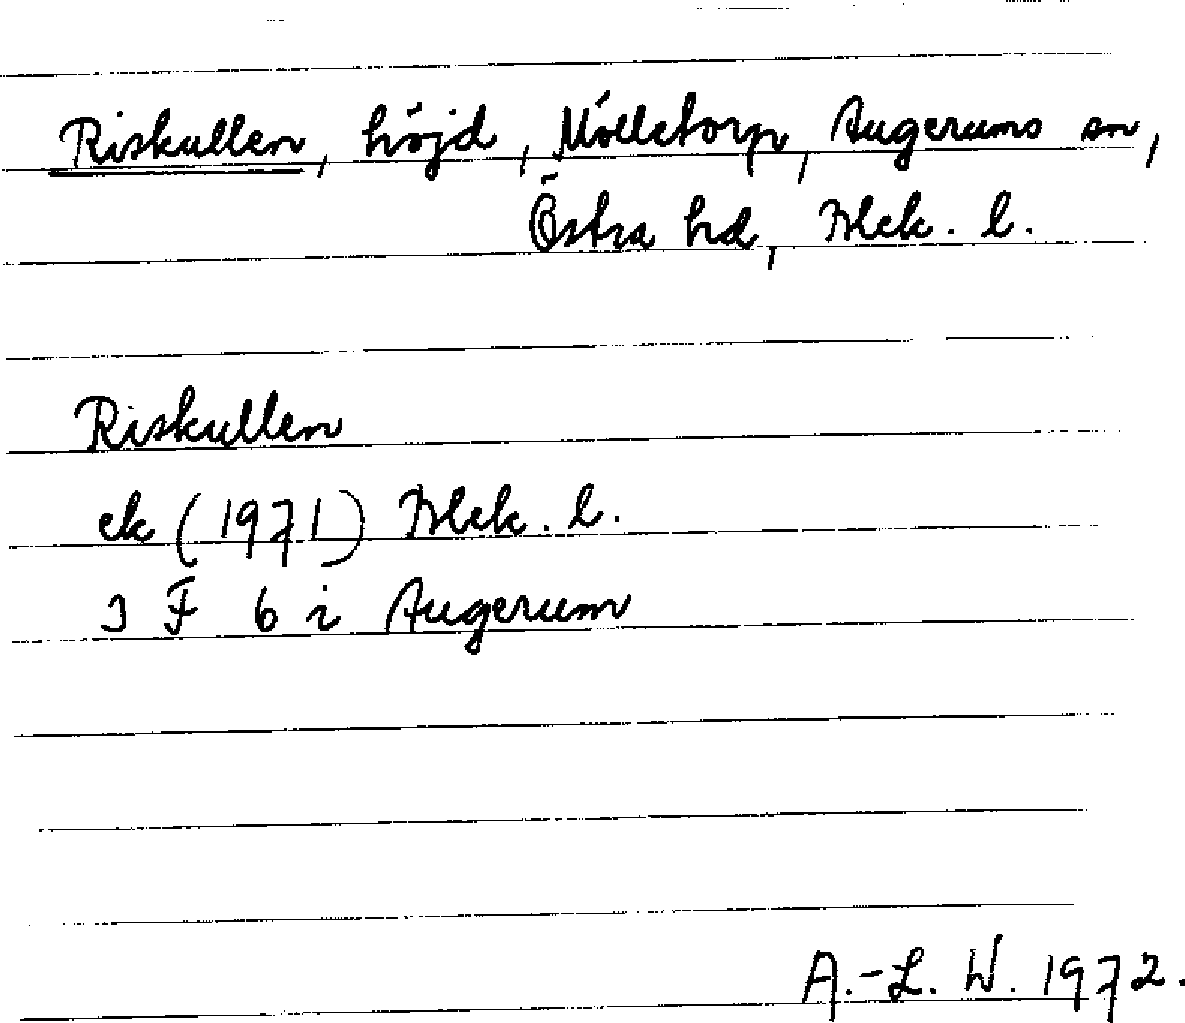 Riskullen, höjd, Mölletorp, Augerums sn,
Östra hd, Blek. l.
Riskullen
ek (1971) Blek. l.
3 F 6 i Augerum
A.-L. W. 1972.